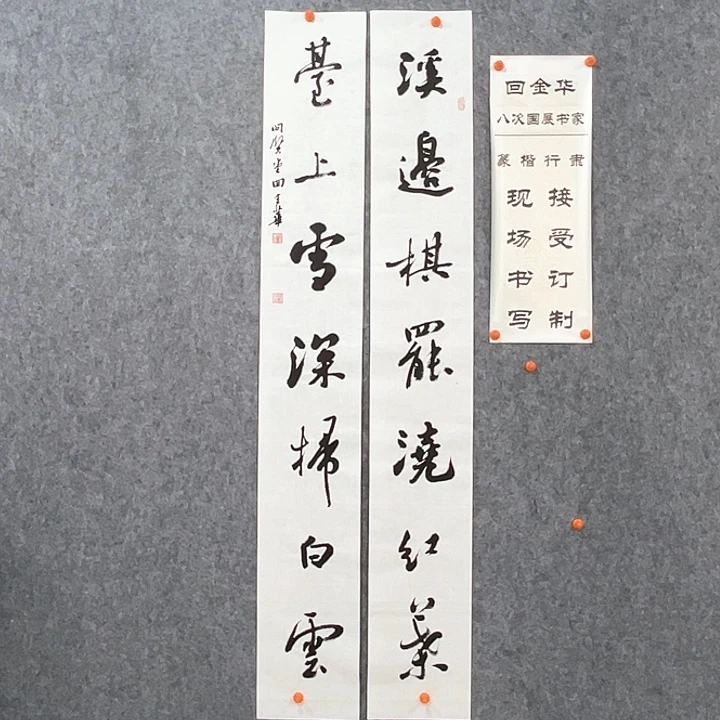 溪邊棋罷澆紅葉
臺上雪深掃白雲
回金華
回金华
八次国展书家
篆楷行隶
现场书写
接受订制